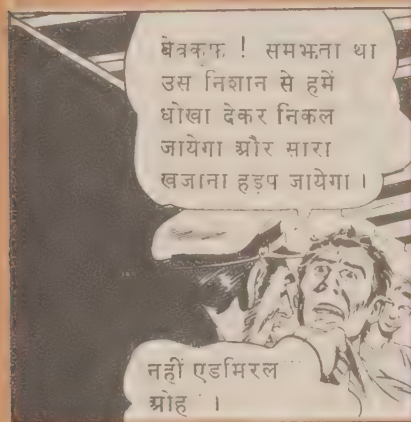 बेवकूफ ! समझता था
उस निशान से हमें
धोखा देकर निकल
जायेगा और सारा
खजाना हड़प जायेगा ।
नहीं एडमिरल
ओह ।